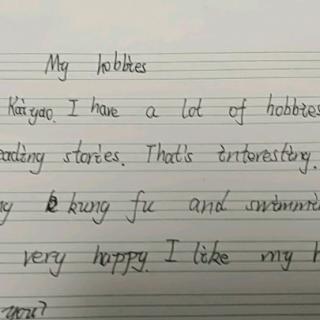 My hobbies
Kaiyao. I have a lot of hobbies
eading stories. That's interesting.
kung fu and swimmi
very happy. I like my h
you?